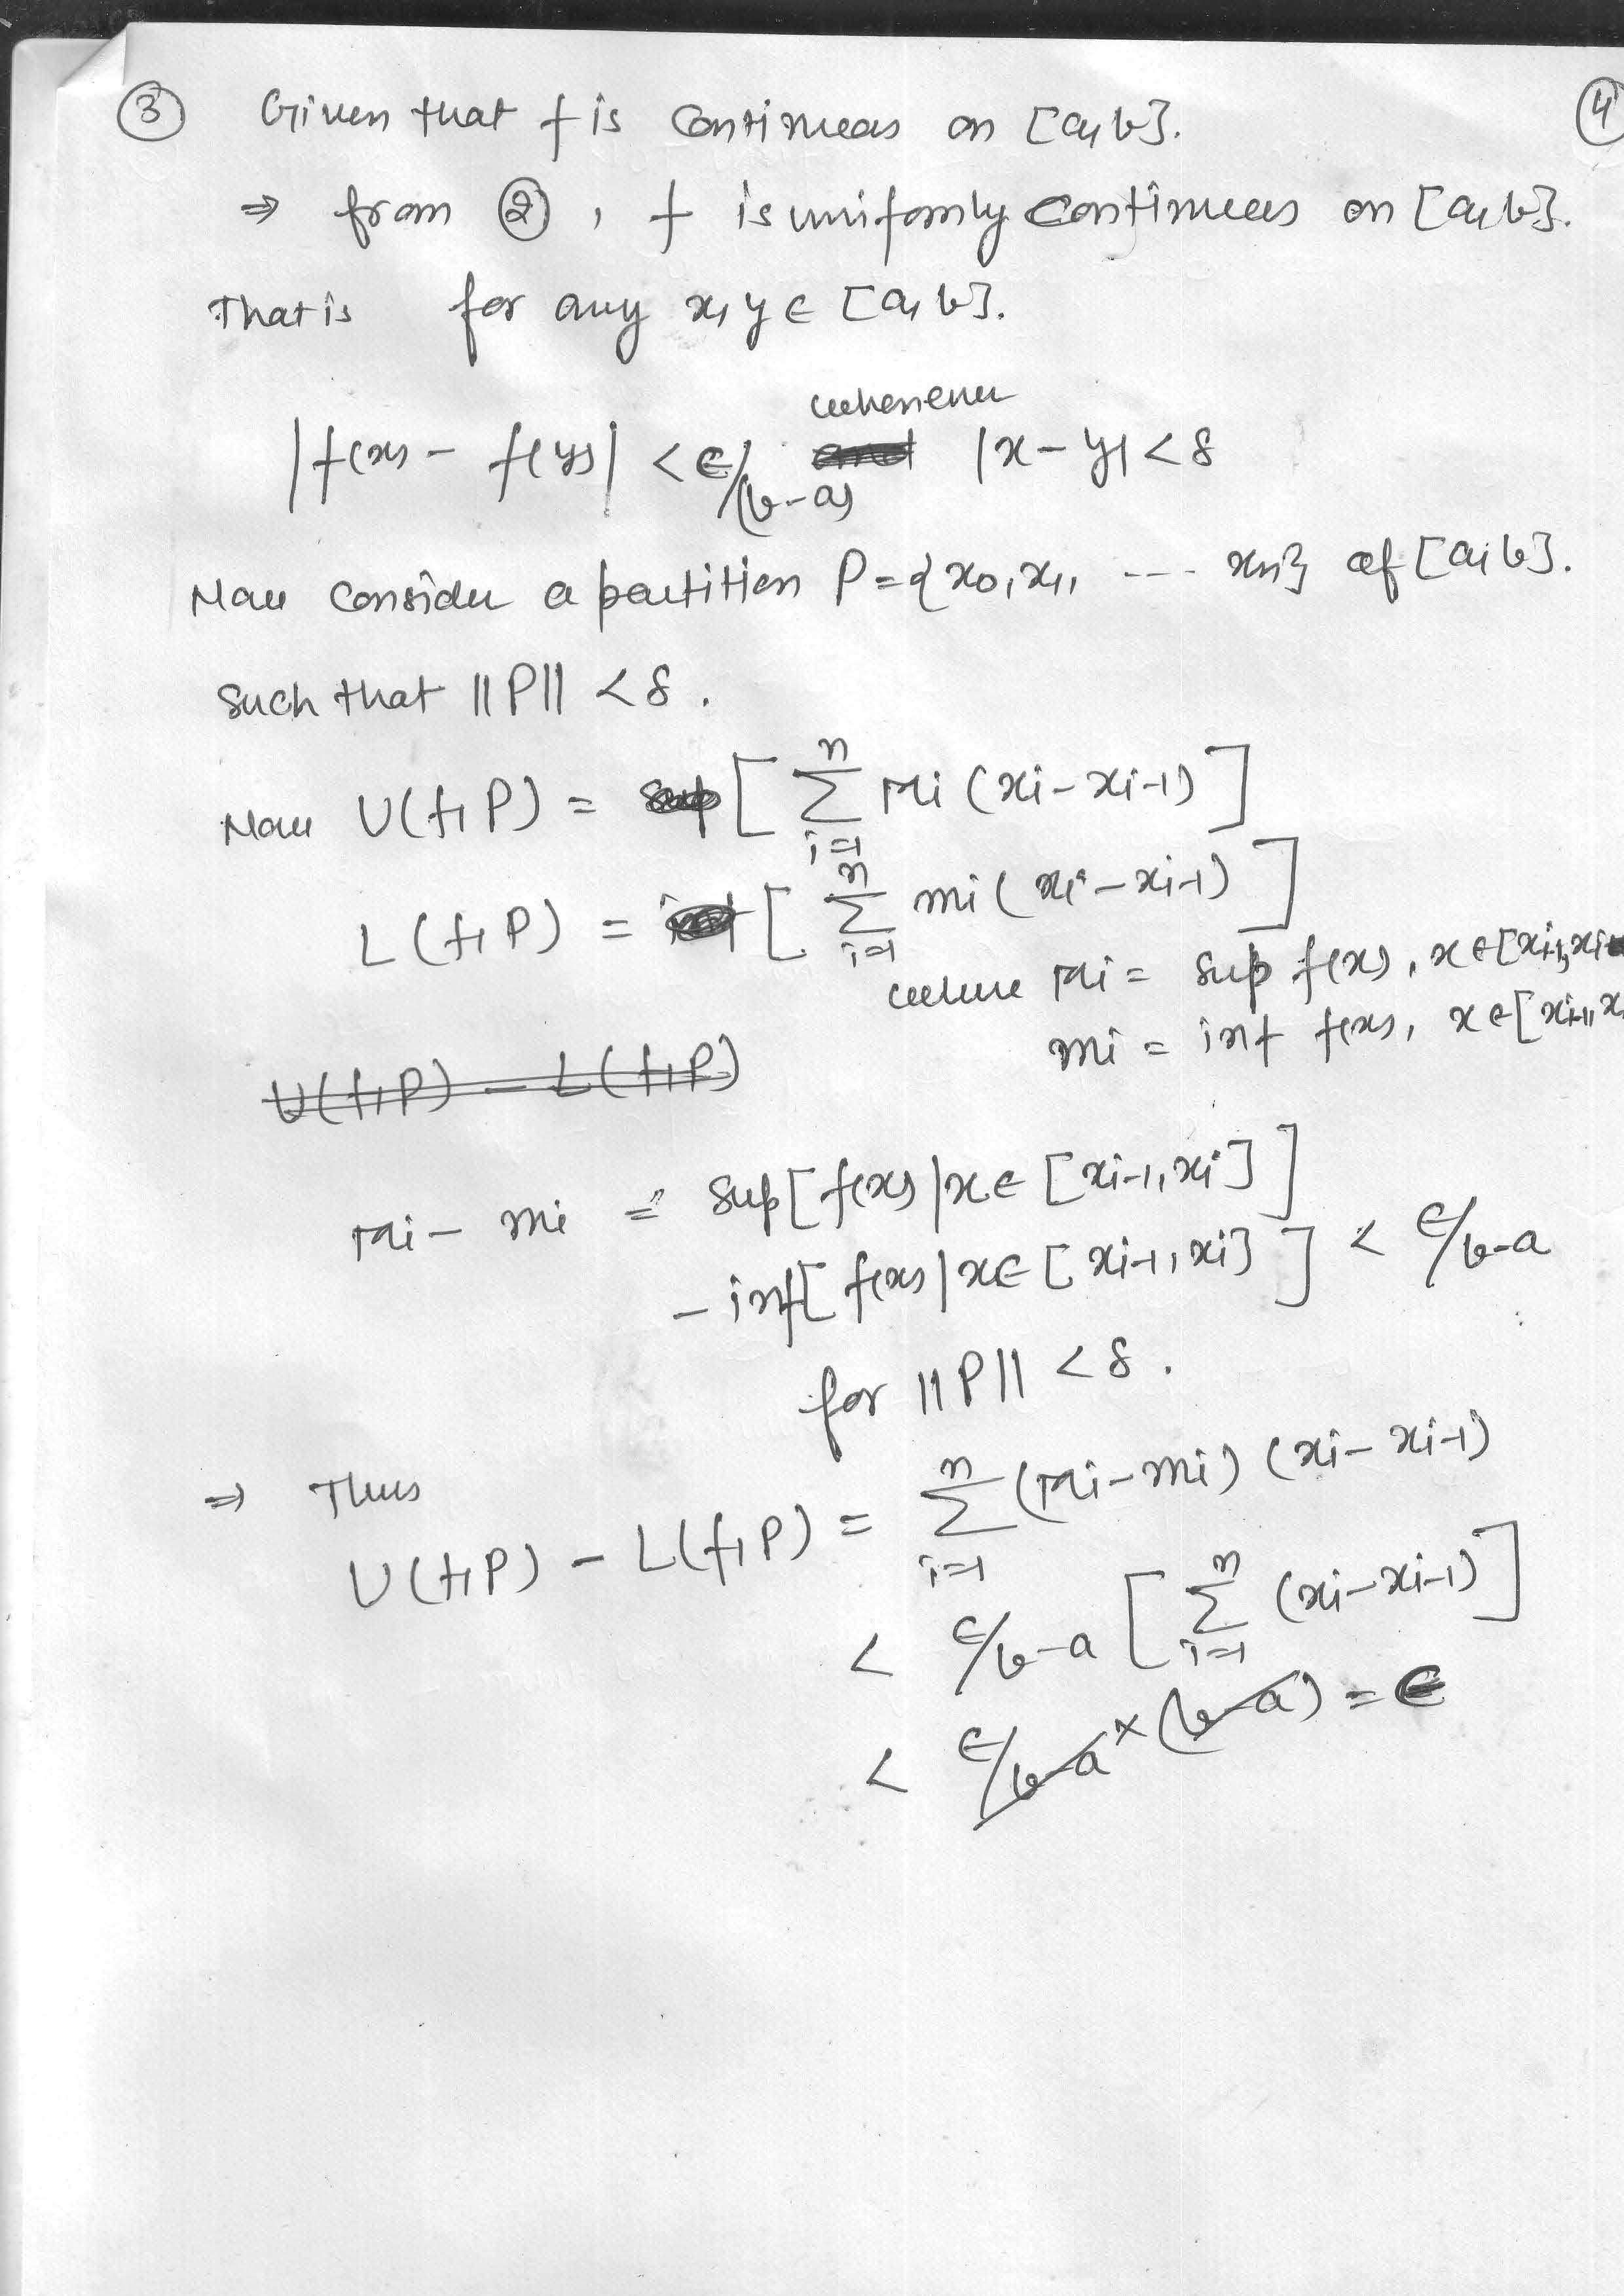 ③ Given that f is continuous on [a, b]. ④
⇒ from ②, f is uniformly continuous on [a, b].
That is for any x, y ∈ [a, b].
whenever
|f(x) - f(y)| < ϵ/(b-a) |x-y| < δ
Now consider a partition P = {x0, x1, --- xn} of [a, b].
Such that ||P|| < δ.
Now U(f, P) = [ n∑i=1 Mi (xi - xi-1) ]
L(f, P) = [ n∑i=1 mi (xi - xi-1) ]
where Mi = sup f(x), x ∈ [xi-1, xi
mi = inf f(x), x ∈ [xi-1, x
U(f, P) - L(f, P)
Mi - mi = sup[ f(x) | x ∈ [xi-1, xi] ]
- inf[ f(x) | x ∈ [xi-1, xi] ] < ϵ/b-a
for ||P|| < δ.
⇒ Thus
U(f, P) - L(f, P) = n∑i=1 (Mi - mi) (xi - xi-1)
< ϵ/b-a [ n∑i=1 (xi - xi-1) ]
< ϵ/b-a × (b-a) = ϵ